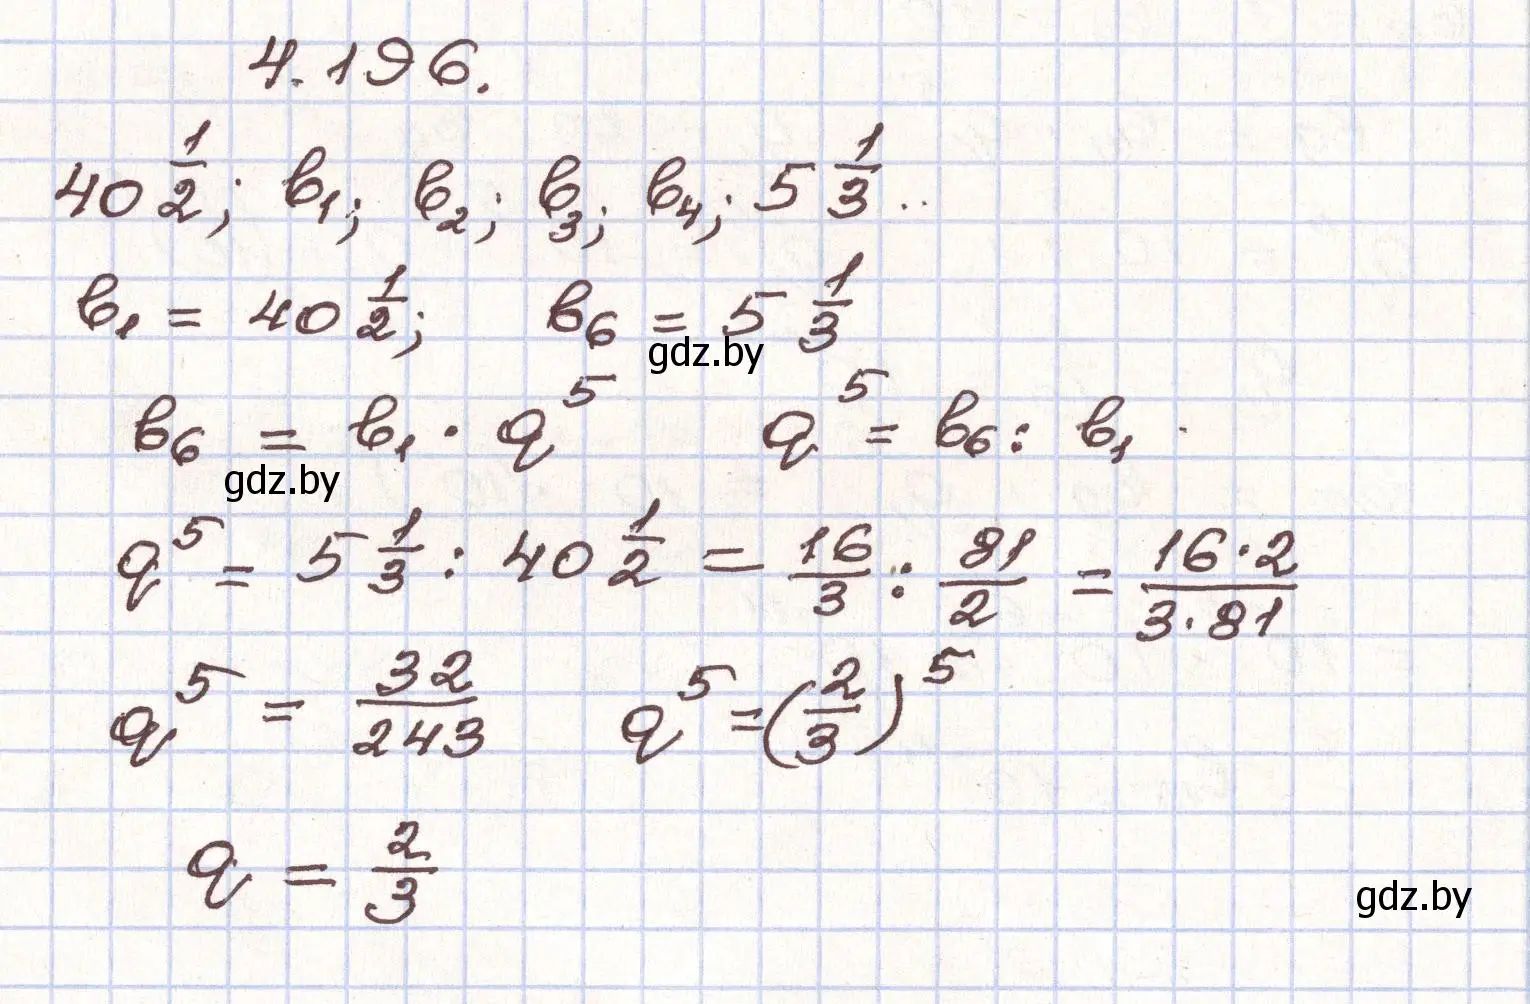 4.196.
40 1/2; b₁; b₂; b₃; b₄; 5 1/3 ..
b₁ = 40 1/2; b₆ = 5 1/3
gdz.by
b₆ = b₁ · q⁵ q⁵ = b₆ : b₁
gdz.by
q⁵ = 5 1/3 : 40 1/2 = 16/3 : 81/2 = (16·2)/(3·81)
q⁵ = 32/243 q⁵ = (2/3)⁵
q = 2/3
gdz.by